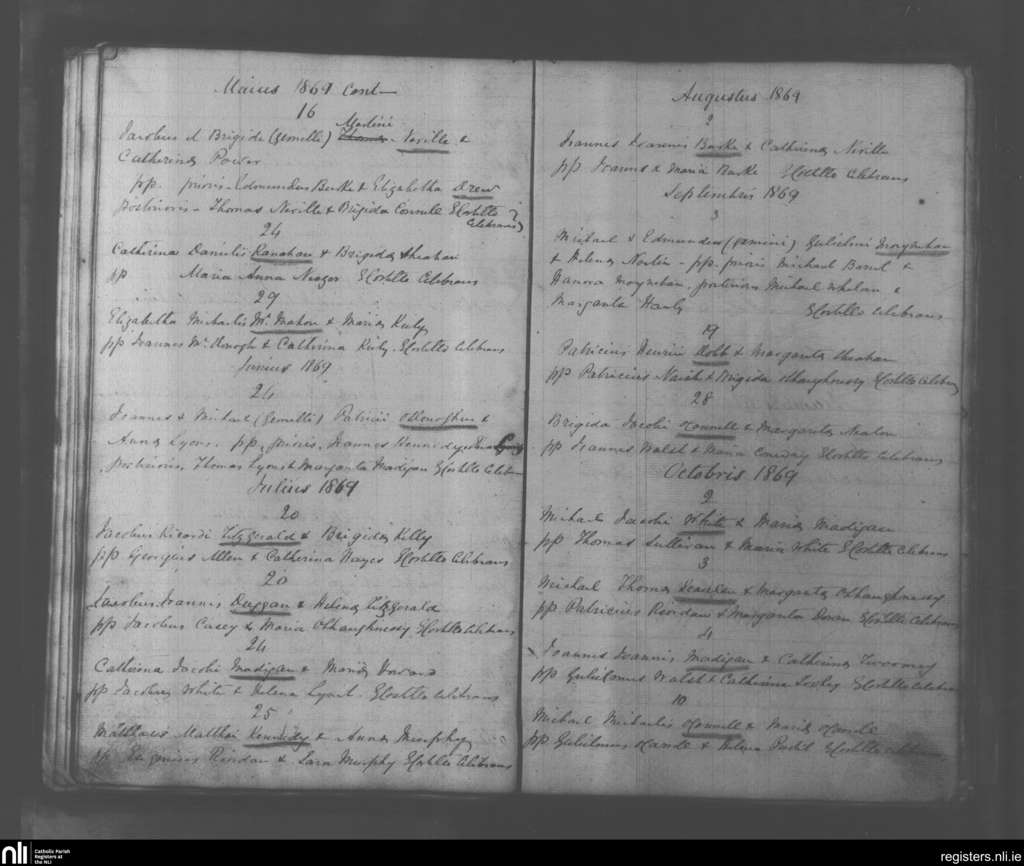 Maius 1869 Cont—
16
Martini
Jacobus et Brigida (gemelli) Neville &
Catherina Power
pp. prioris - Edmundus Burke & Elizabetha Drew
posterioris - Thomas Neville & Brigida Connell E Costello
Celebrans
24
Catherina Danielis Ranahan & Brigida Sheahan
pp Maria Anna Neazor E Costello Celebrans
29
Elizabetha Michaelis McMahon & Maria Kirby
pp Joannes McDonogh & Catherina Kirby E Costello Celebrans
Junius 1869
24
Joannes & Michael (gemelli) Patricii O'Donoghue &
Anna Lyons. pp. prioris, Joannes
posterioris, Thomas Lyons & Margarita Madigan E Costello Celebran
Julius 1869
20
Jacobus Ricardi Fitzgerald & Brigida Killy
pp Georgius Allen & Catherina Hayes E Costello Celebrans
20
Jacobus Joannis Duggan & Helena Fitzgerald
pp Jacobus Casey & Maria OShaughnessy E Costello Celebrans
24
Catherina Jacobi Madigan & Maria
pp Jacobus White & Helena E Costello Celebrans
25
Matthaeus Matthei Kennedy & Anna Murphy
pp Riordan & Sara Murphy E Costello Celebrans
Augustus 1869
2
Joannes Joannis Burke & Catherina Neville
pp Joannes & Maria Burke E Costello Celebrans
Septembris 1869
3
Michael & Edmundus (gemini) Gulielmi Moynihan
& Helena - pp. prioris Michael &
Hanora Moynihan, posterioris Michael Whelan &
Margarita E Costello Celebrans
19
Patricius Henrici & Margarita Sheahan
pp Patricius Naish & Brigida OShaughnessy E Costello Celebran
28
Brigida Jacobi OConnell & Margarita
pp Joannes Walsh & Maria Conway E Costello Celebrans
Octobris 1869
2
Michael Jacobi White & Maria Madigan
pp Thomas Sullivan & Maria White E Costello Celebrans
3
Michael Thoma Scanlan & Margarita OShaughnessy
pp Patricius Riordan & Margarita E Costello Celebrans
4
Joannes Joannis Madigan & Catherina Twoomey
pp Gulielmus Walsh & Catherina E Costello Celebrans
10
Michael Michaelis OConnell & Maria
pp Gulielmus & Helena E Costello
nli
Catholic Parish
Registers at
the NLI
registers.nli.ie